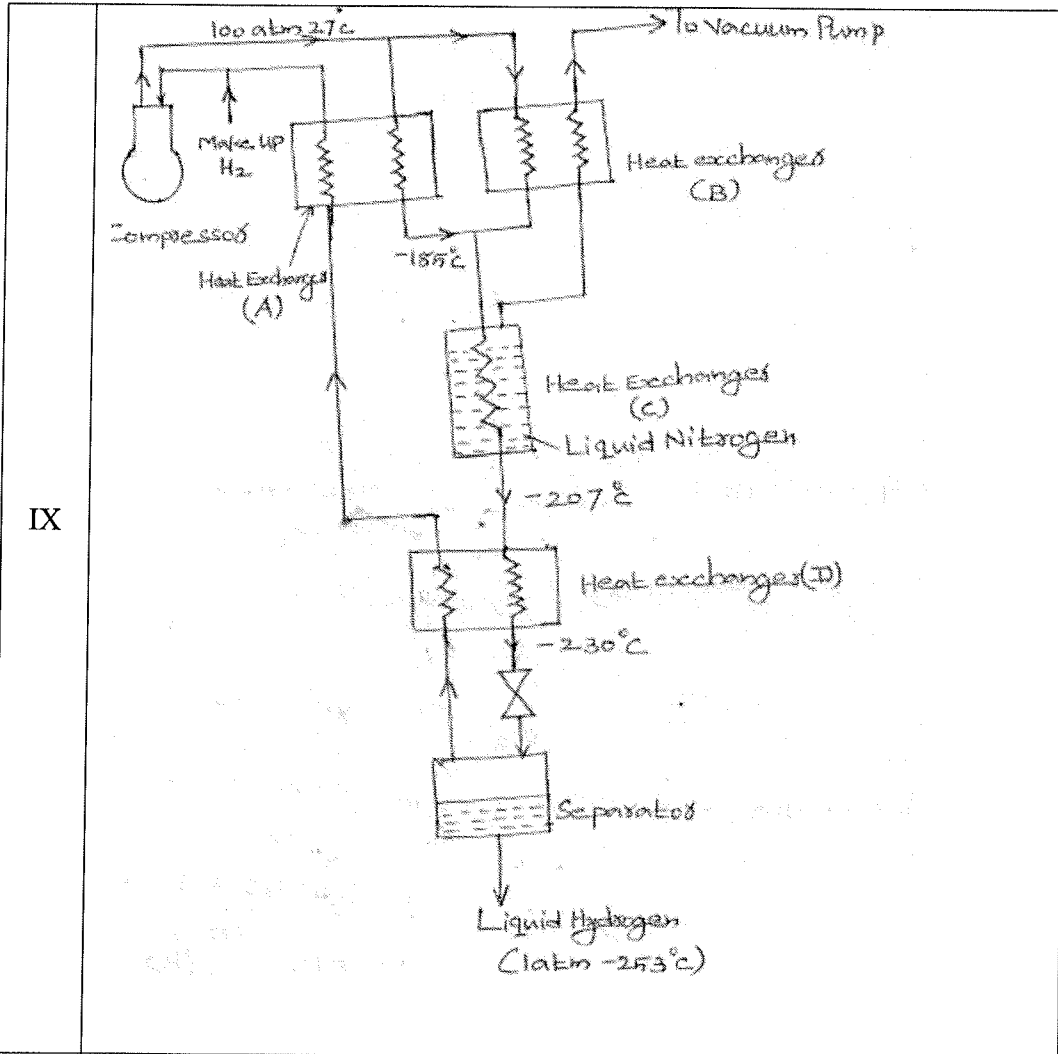 100 atm 27°C
To Vacuum Pump
Make up
H2
Heat exchanger
(B)
Compressor
Heat Exchanger
(A)
-185°C
Heat Exchanger
(C)
Liquid Nitrogen
-207°C
IX
Heat exchanger (D)
-230°C
Separator
Liquid Hydrogen
(1atm -253°C)